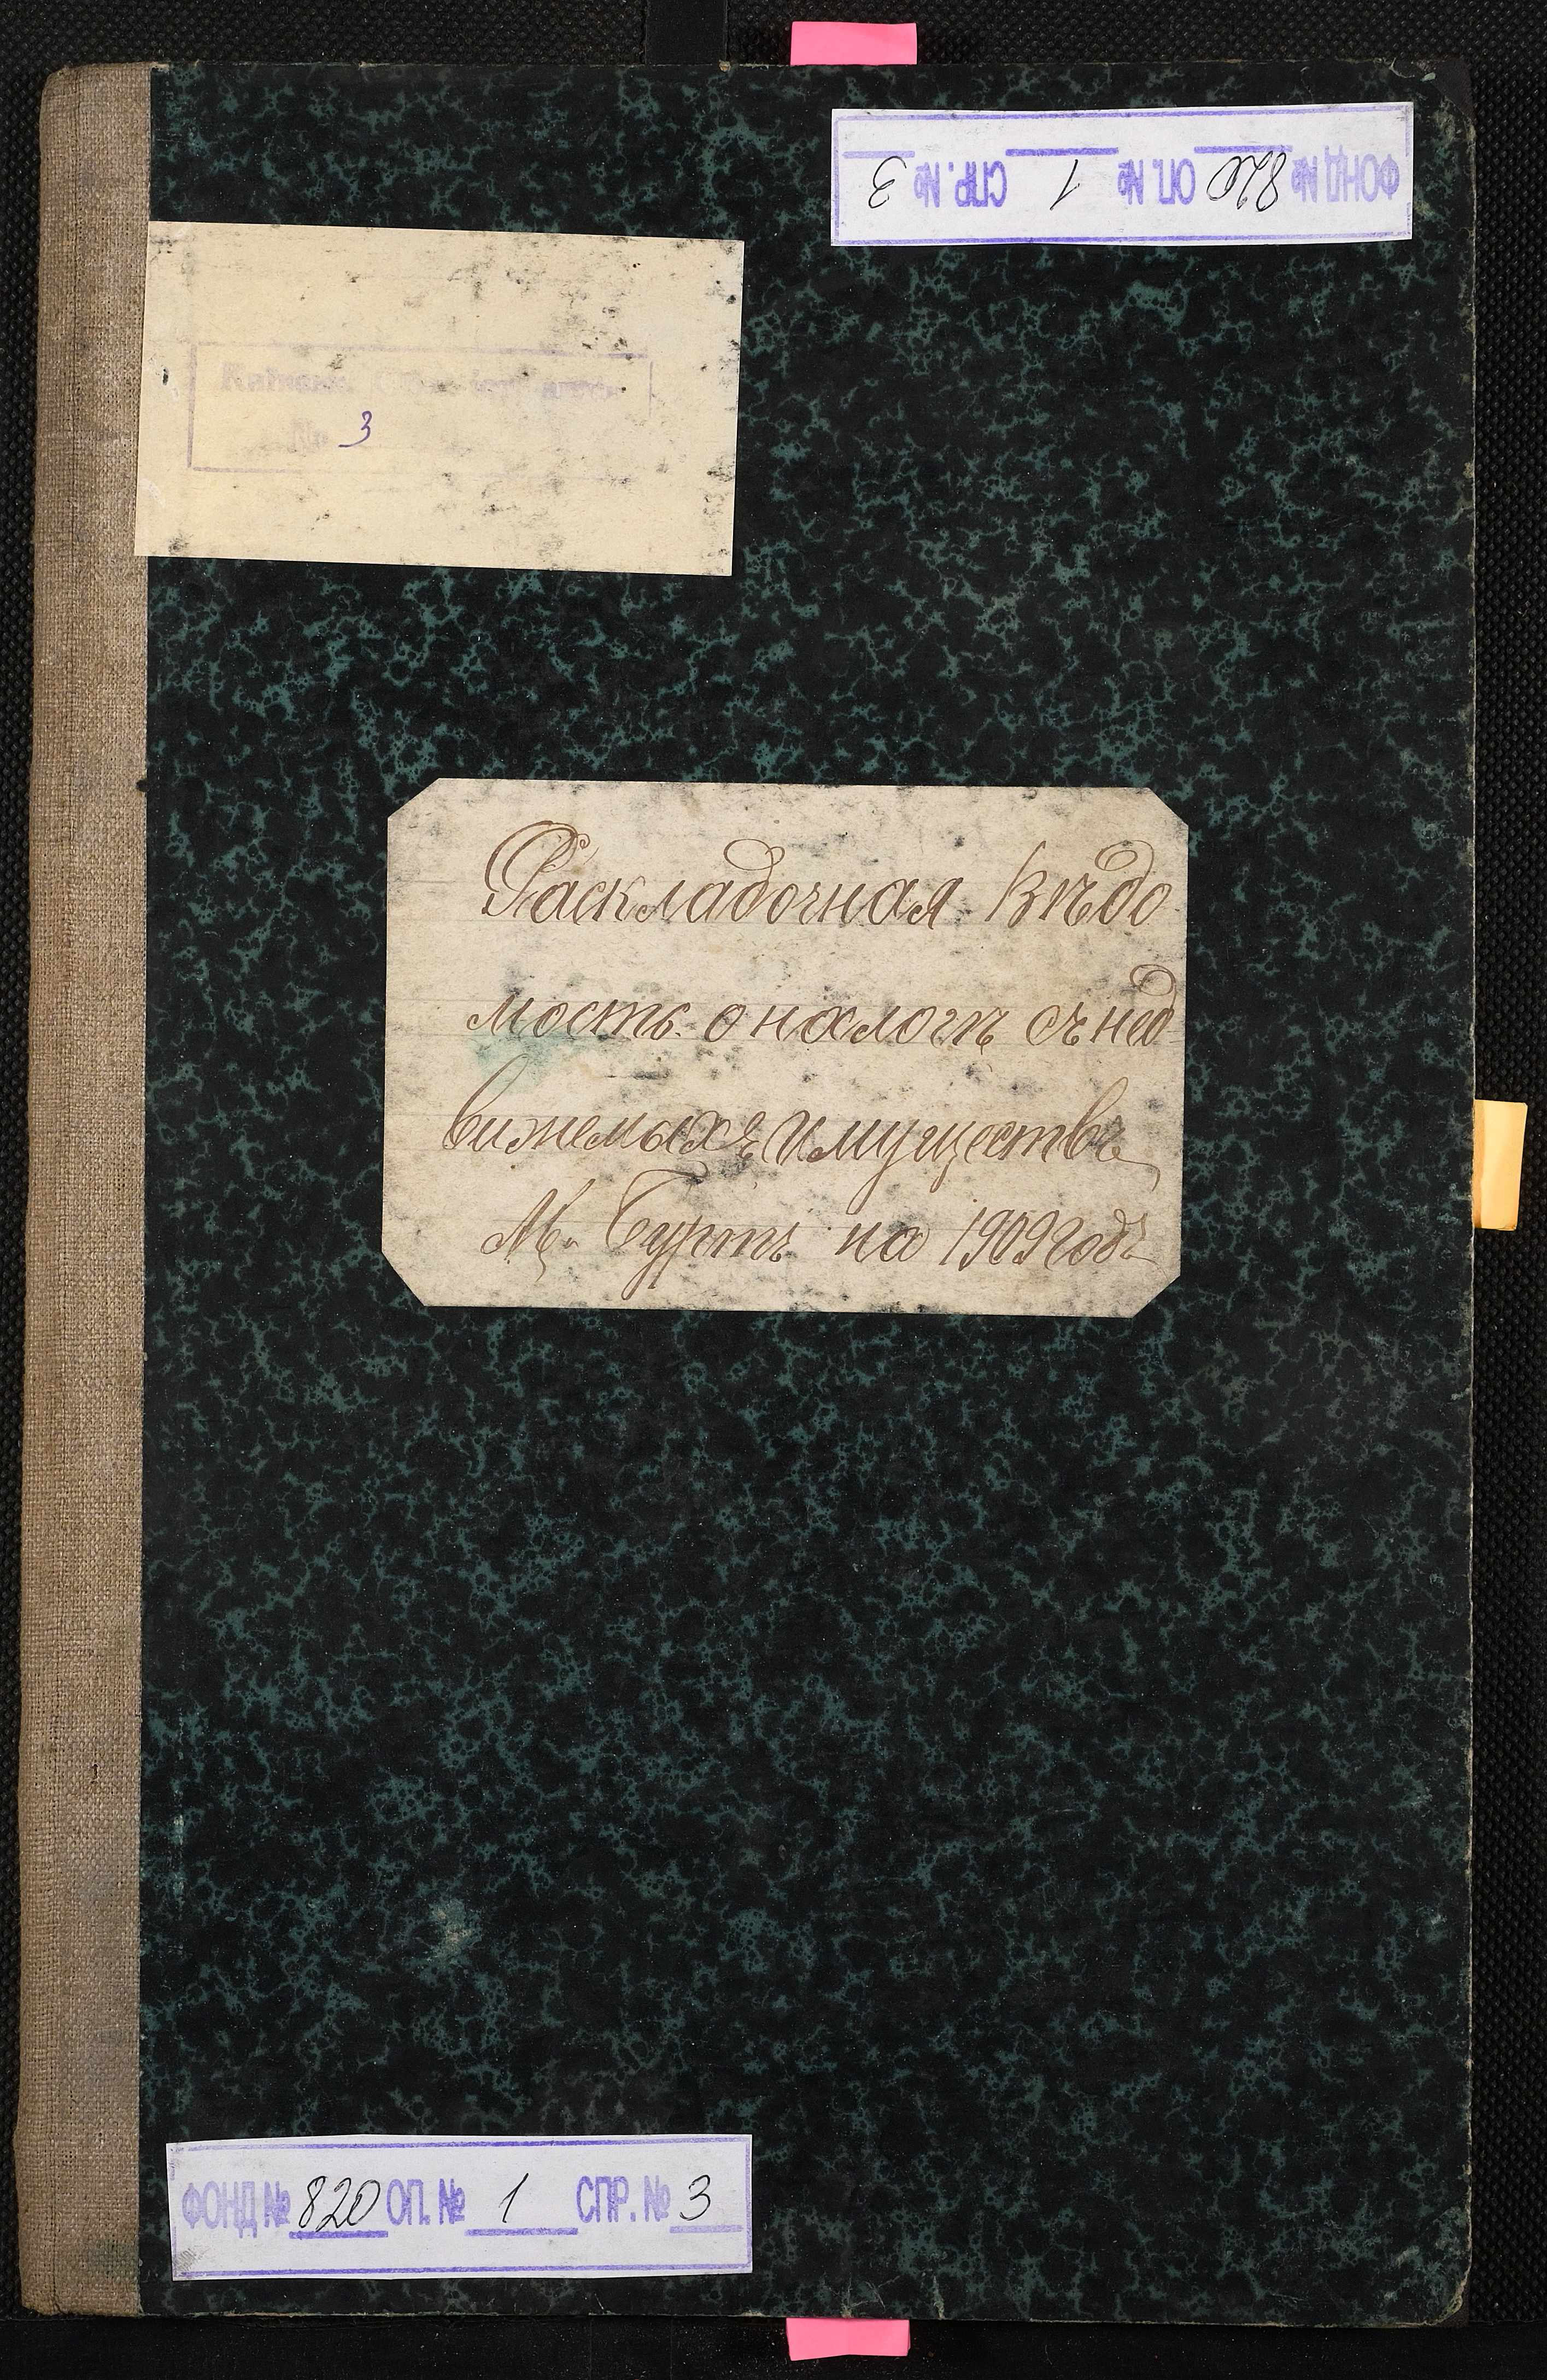 ФОНД № 820 ОП. № 1 СПР. № 3
№ 3
Раскладочная Вѣдо
мость о налогѣ съ нед
вижемыхъ имуществъ
М. Буртъ на 1909 годъ
ФОНД № 820 ОП. № 1 СПР. № 3